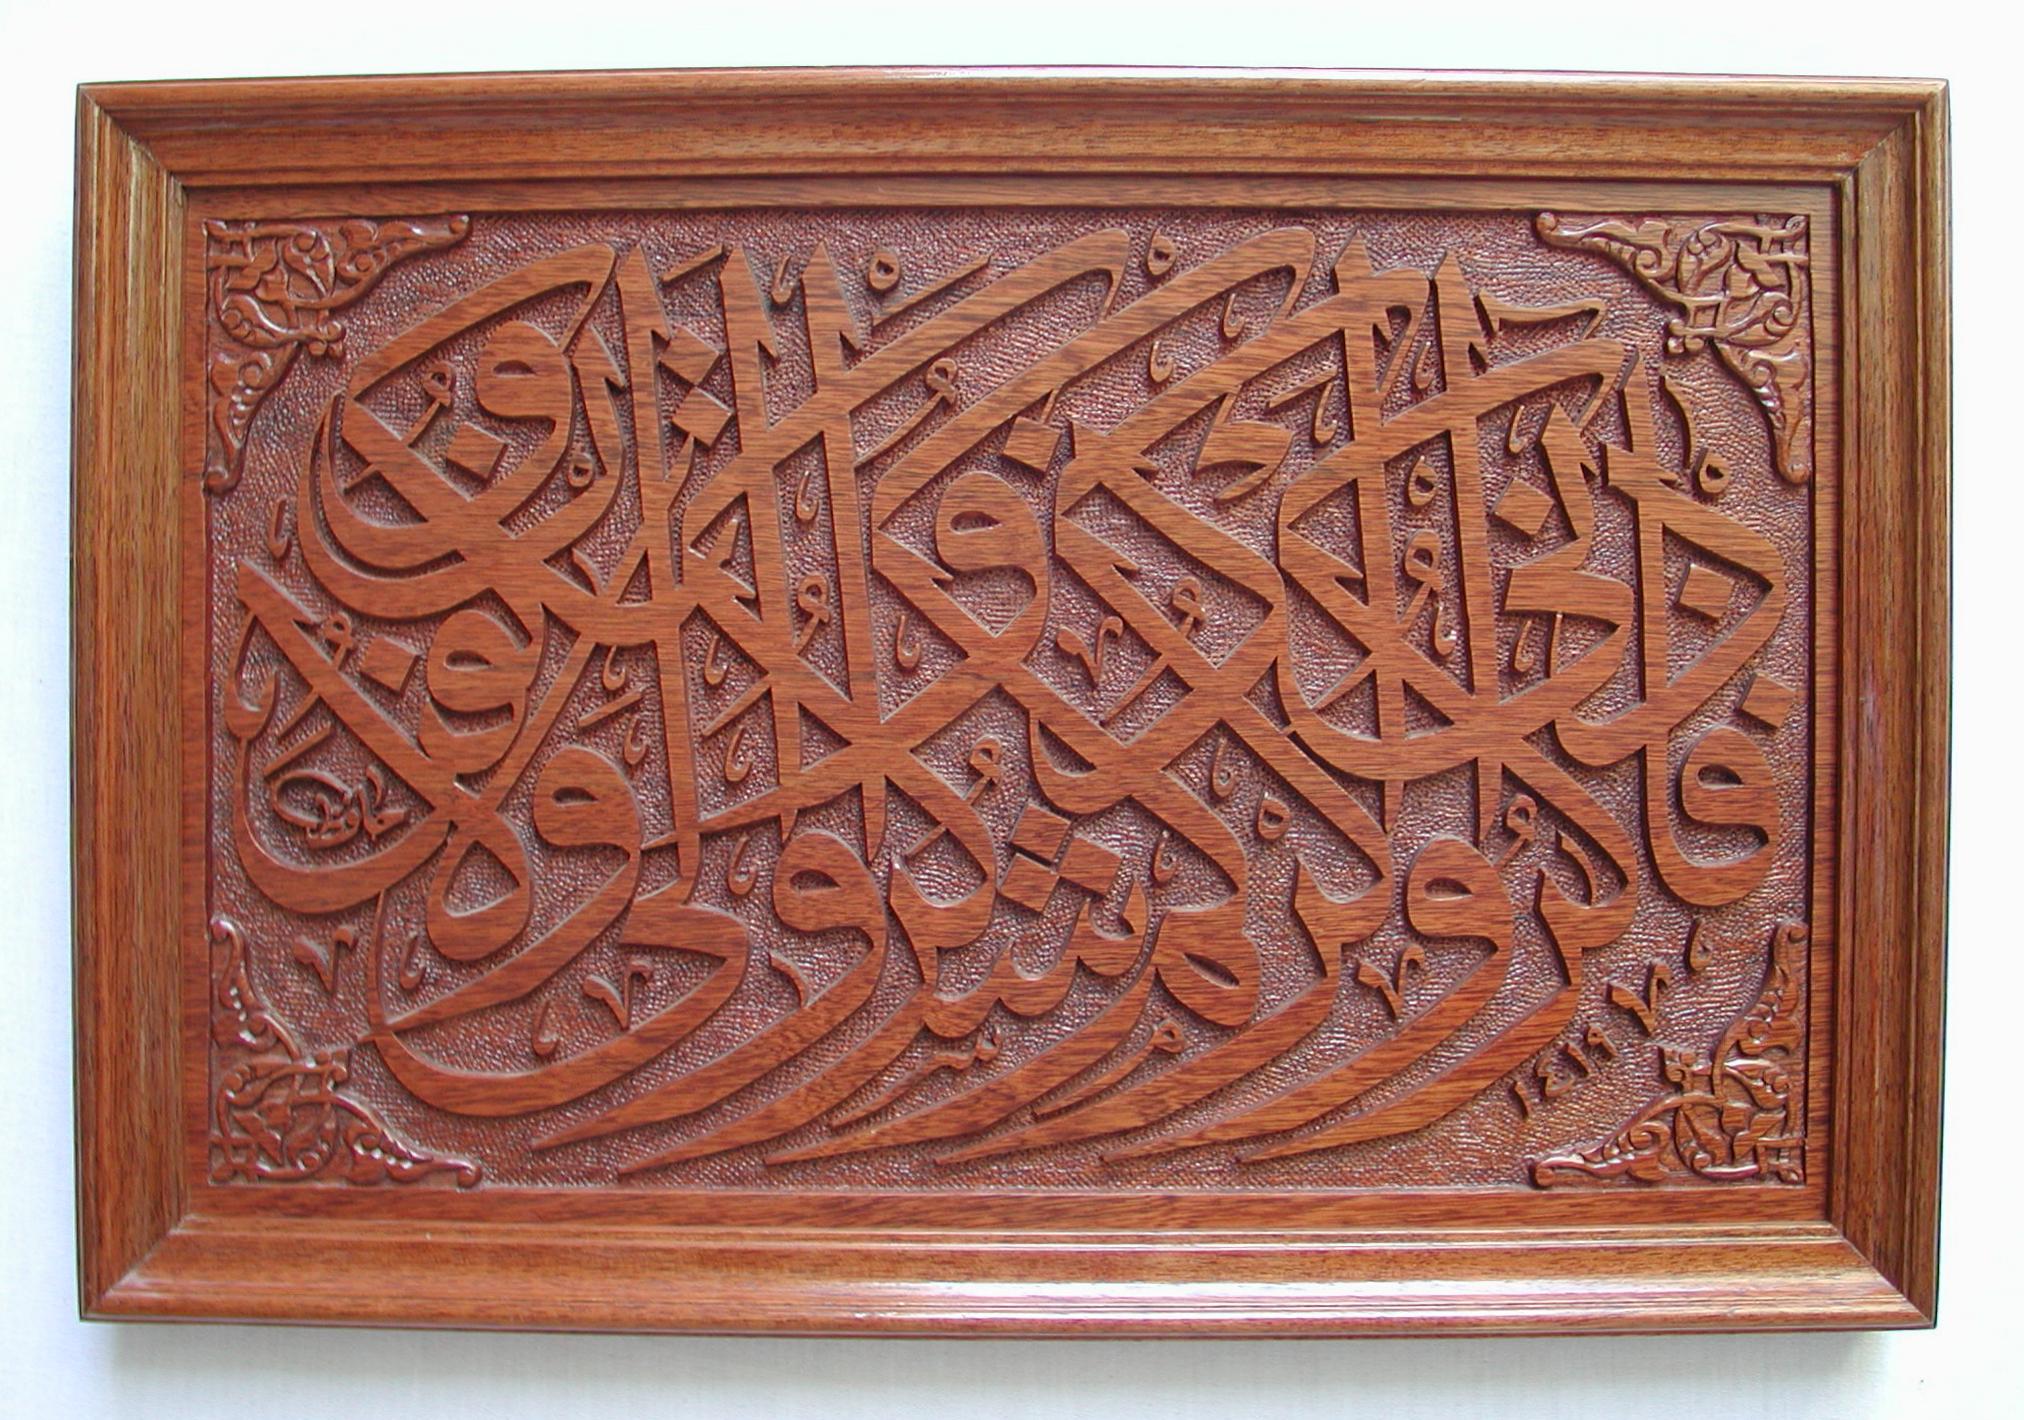 فَاذْكُرُونِي أَذْكُرْكُمْ وَاشْكُرُوا لِي وَلَا تَكْفُرُونِ
١٤١٩